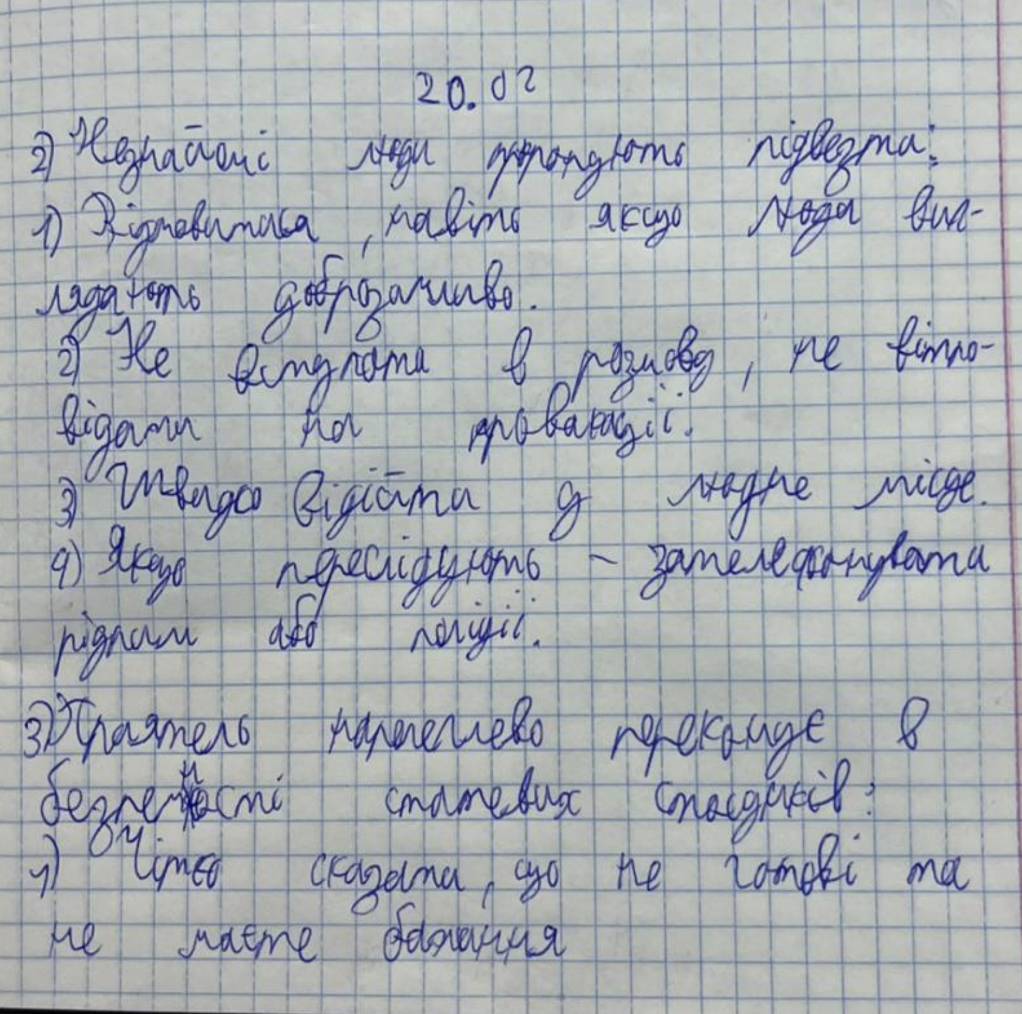 20.02
2) Незнайомі люди пропонують підвезти:
1) Відмовитися, навіть якщо люди виг-
лядають доброзичливо.
2) Не вступати в розмову, не відпо-
відати на провокації.
3) Швидко відійти у людне місце.
4) Якщо переслідують - зателефонувати
рідним або поліції.
3) Приятель наполегливо переконує в
безпечності статевих стосунків:
1) Чітко сказати, що не готові та
не маєте бажання